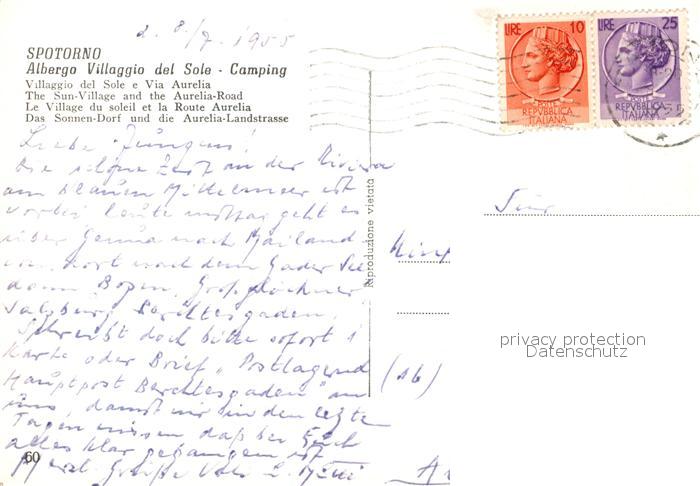 d. 8./7. 1955
SPOTORNO
Albergo Villaggio del Sole - Camping
Villaggio del Sole e Via Aurelia
The Sun-Village and the Aurelia-Road
Le Village du soleil et la Route Aurelia
Das Sonnen-Dorf und die Aurelia-Landstrasse
LIRE 10
POSTE
REPVBBLICA
ITALIANA
LIRE 25
POSTE
REPVBBLICA
ITALIANA
Liebe Jungens!
Die schöne Zeit an der Riviera
am blauen Mittelmeer ist
vorbei heute mittag geht es
über Genua nach Mailand
von dort nach dem Garder See
dann Bozen, Großglockner
Salzburg Berchtesgaden.
Schreibt doch bitte sofort 1
Karte oder Brief „Postlagernd
Hauptpost Berchtesgaden" an
uns, damit wir in den letzten
Tagen wissen daß bei Euch
alles klar gegangen ist
Herzl. Grüße
Riproduzione vietata
(16)
60
privacy protection
Datenschutz